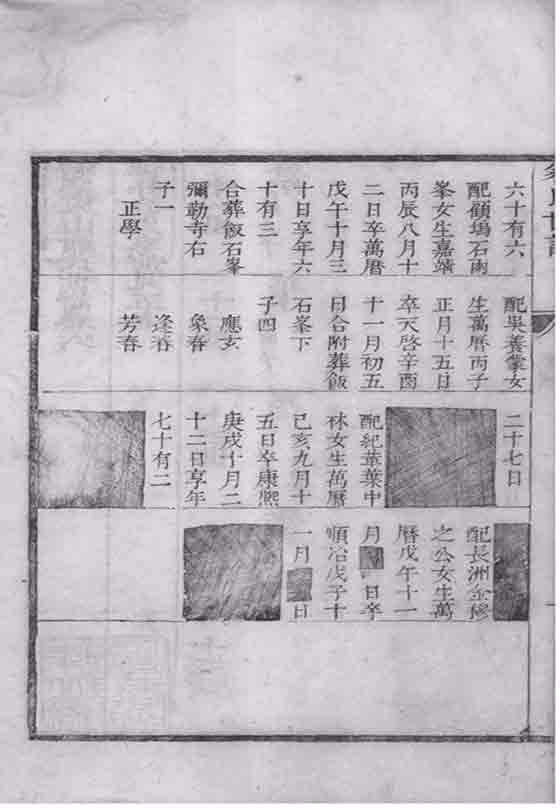 六十有六
配顧塢石雨
峯女生嘉靖
丙辰八月十
二日卒萬曆
戊午十月三
十日享年六
十有三
合葬飯石峯
彌勒寺右
子一
正學
配吳養蒙女
生萬曆丙子
正月十五日
卒天啓辛酉
十一月初五
日合附葬飯
石峯下
子四
應玄
象春
逢春
芳春
二十七日
配紀華葉中
林女生萬曆
己亥九月十
五日卒康熙
庚戌十月二
十二日享年
七十有二
配長洲金穆
之公女生萬
曆戊午十一
月 日卒
順治戊子十
一月 日